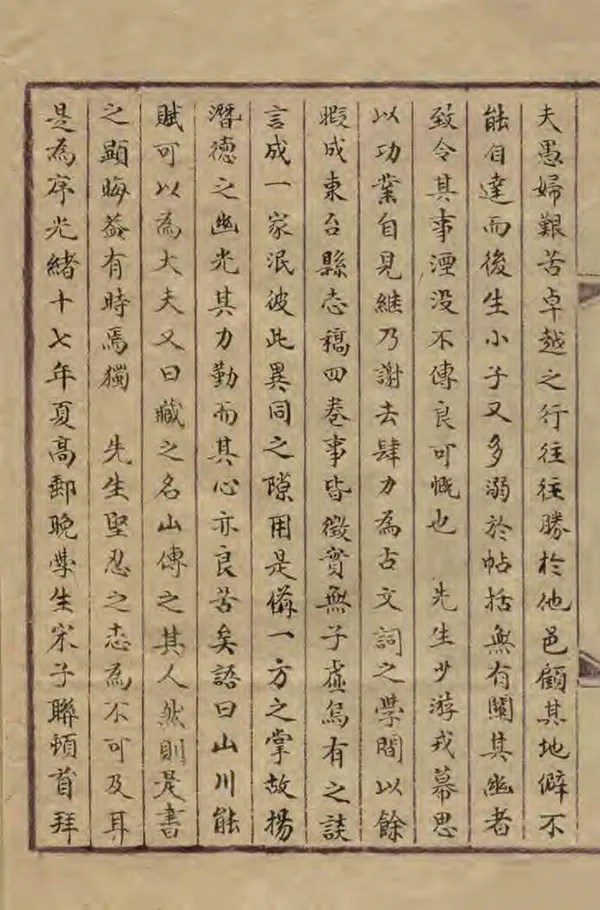 夫愚婦艱苦卓越之行往往勝於他邑顧其地僻不
能自達而後生小子又多溺於帖括無有闡其幽者
致令其事湮没不傳良可慨也　先生少游戎幕思
以功業自見継乃謝去肆力為古文詞之學間以餘
暇成東台縣志稿四卷事皆徵實無子虛烏有之談
言成一家泯彼此異同之隙用是備一方之掌故揚
潛德之幽光其力勤而其心亦良苦矣語曰山川能
賦可以為大夫又曰藏之名山傳之其人然則是書
之顯晦蓋有時焉獨　先生堅忍之志為不可及耳
是為序光緒十七年夏高郵晚學生宋子聯頓首拜